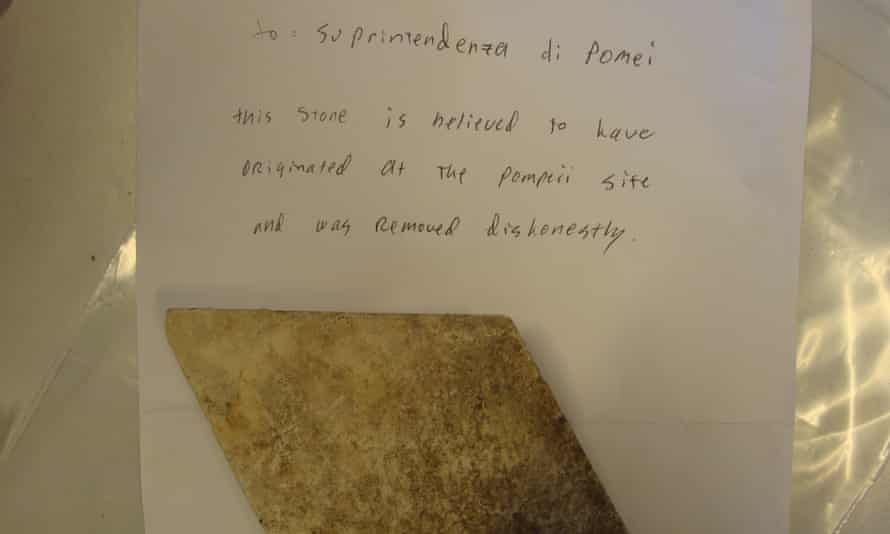 to: Suprintendenza di Pomei
this stone is believed to have
originated at the pompeii site
and was removed dishonestly.